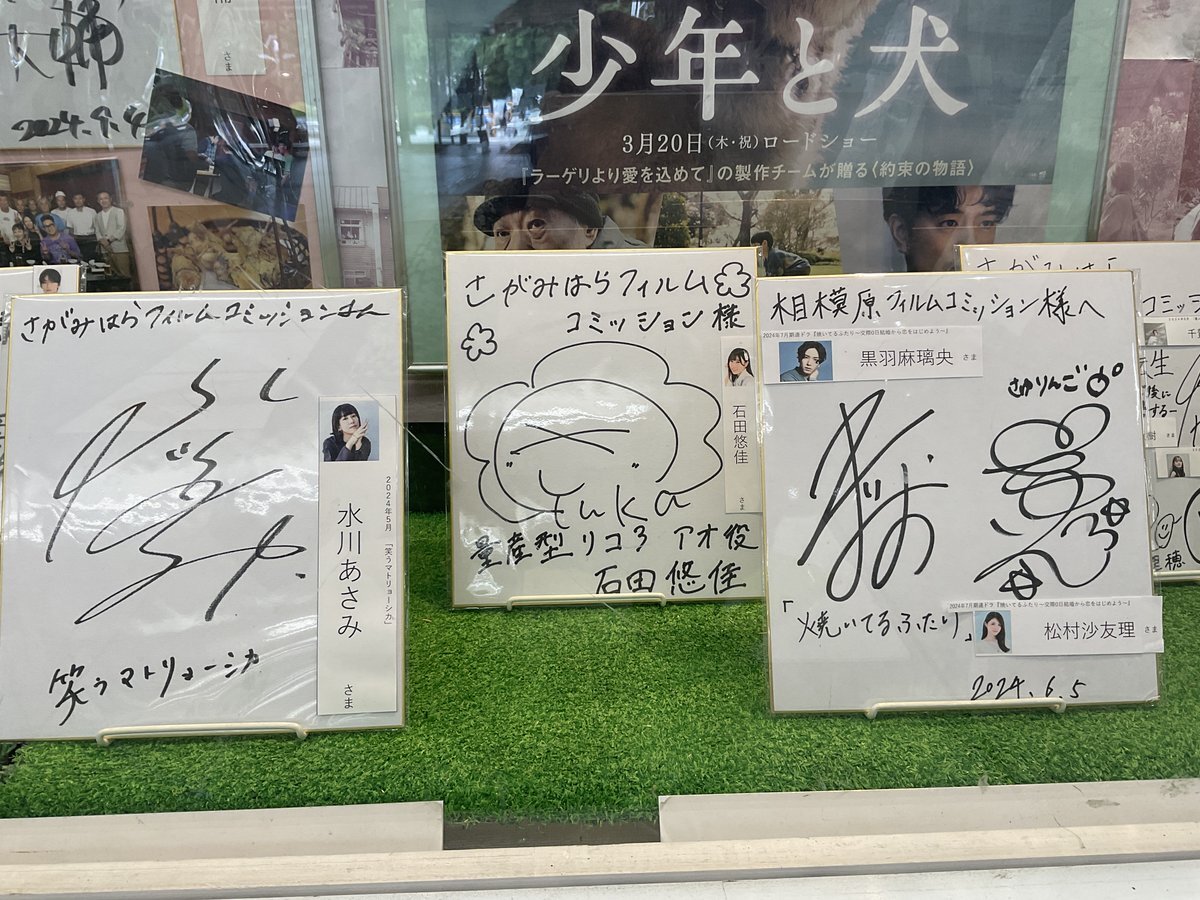 さま
2024.9.4
少年と犬
3月20日(木・祝)ロードショー
『ラーゲリより愛を込めて』の製作チームが贈る〈約束の物語〉
さがみはらフィルムコミッションさん
2024年5月 「笑うマトリョーシカ」
水川あさみ
さま
笑うマトリョーシカ
さがみはらフィルム
コミッション様
石田悠佳
さま
Yuka
量産型リコ3 アオ役
石田悠佳
相模原フィルムコミッション様へ
2024年7月期連ドラ『焼いてるふたり~交際0日結婚から恋をはじめよう~』
黒羽麻璃央 さま
さゆりんご
「焼いてるふたり」
2024年7月期連ドラ『焼いてるふたり~交際0日結婚から恋をはじめよう~』
松村沙友理 さま
2024.6.5